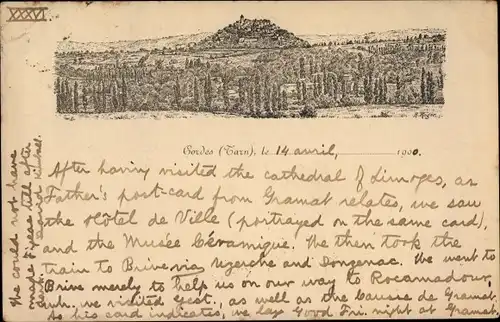 XXXVI.
Cordes (Tarn), le 14 avril, 1900.
After having visited the cathedral of Limoges, as
Father's post-card from Gramat relates, we saw
the Hôtel de Ville (portrayed on the same card),
and the Musée Céramique. We then took the
train to Brive via Uzerche and Donzenac. We went to
Brive merely to help us on our way to Rocamadour,
wh. we visited yest., as well as the Causse de Gramat.
As his card indicates, we lay Good Fri. night at Gramat.
We could not have
made Figeac till after